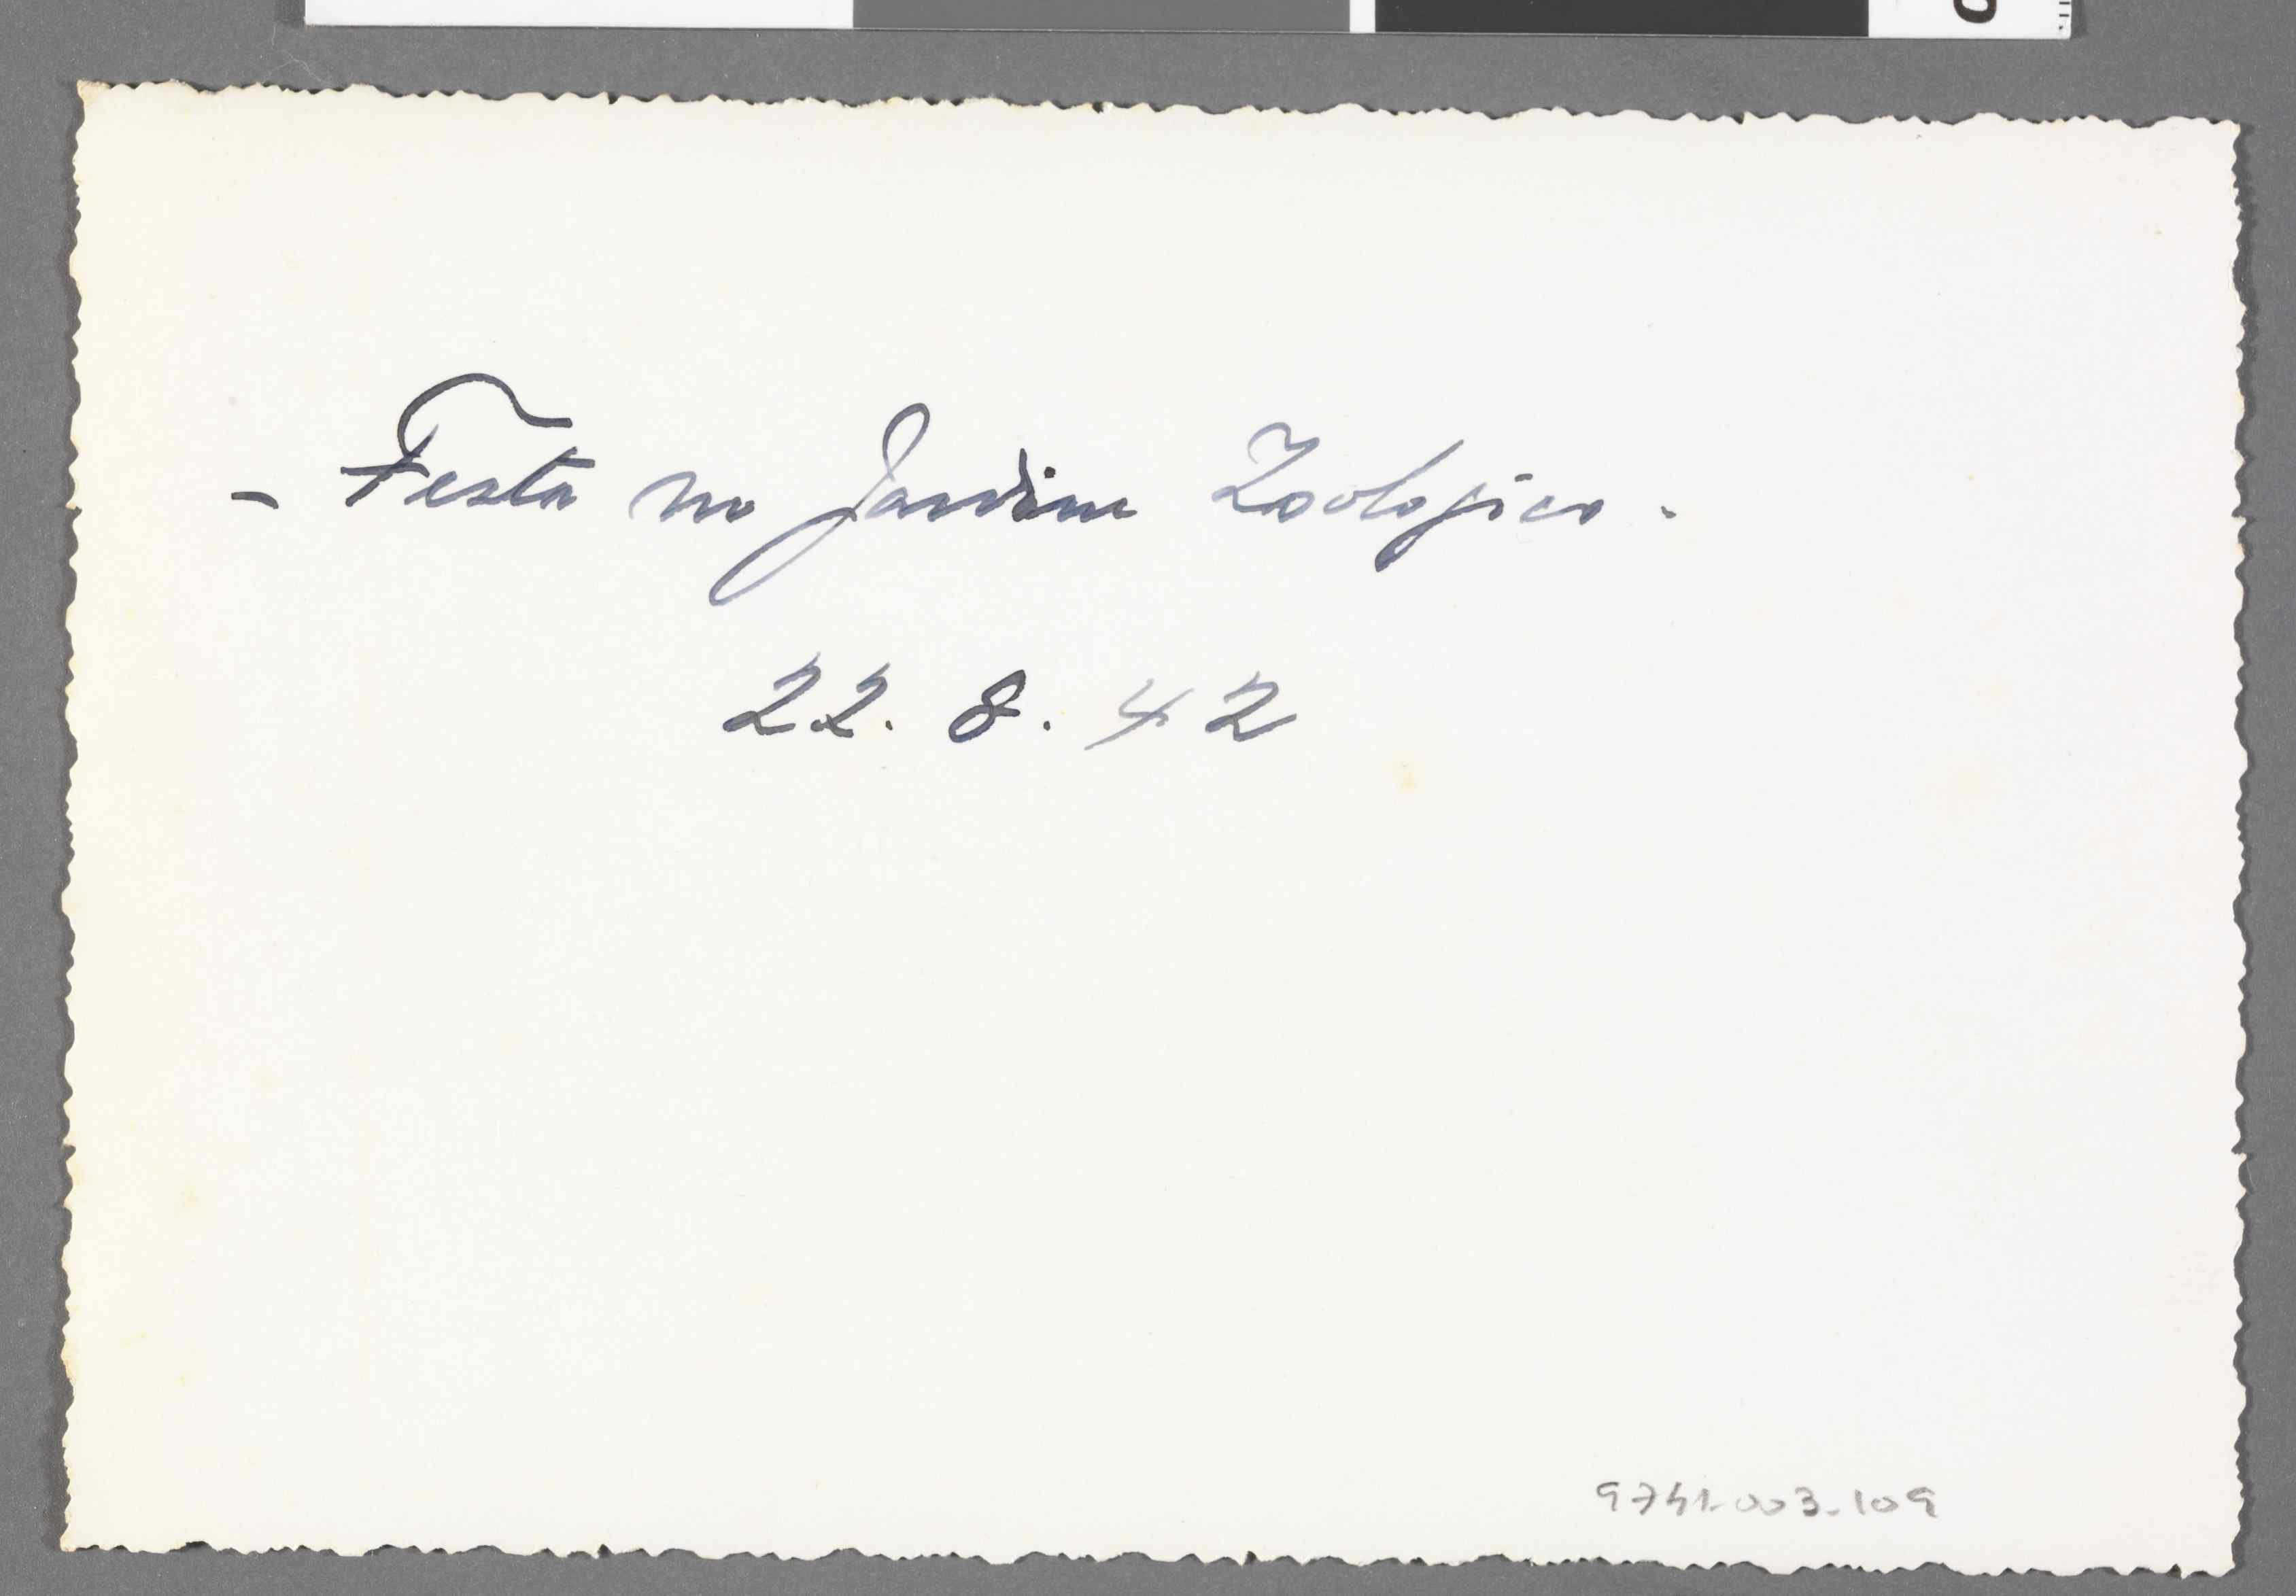 - Festa no Jardim Zoologico.
22. 8. 42
9741-003-109